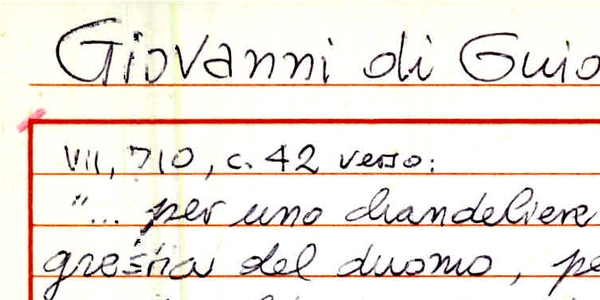 Giovanni di Guio
VII, 710, c. 42 verso:
"... per uno chandeliere
grestia del duomo, pe